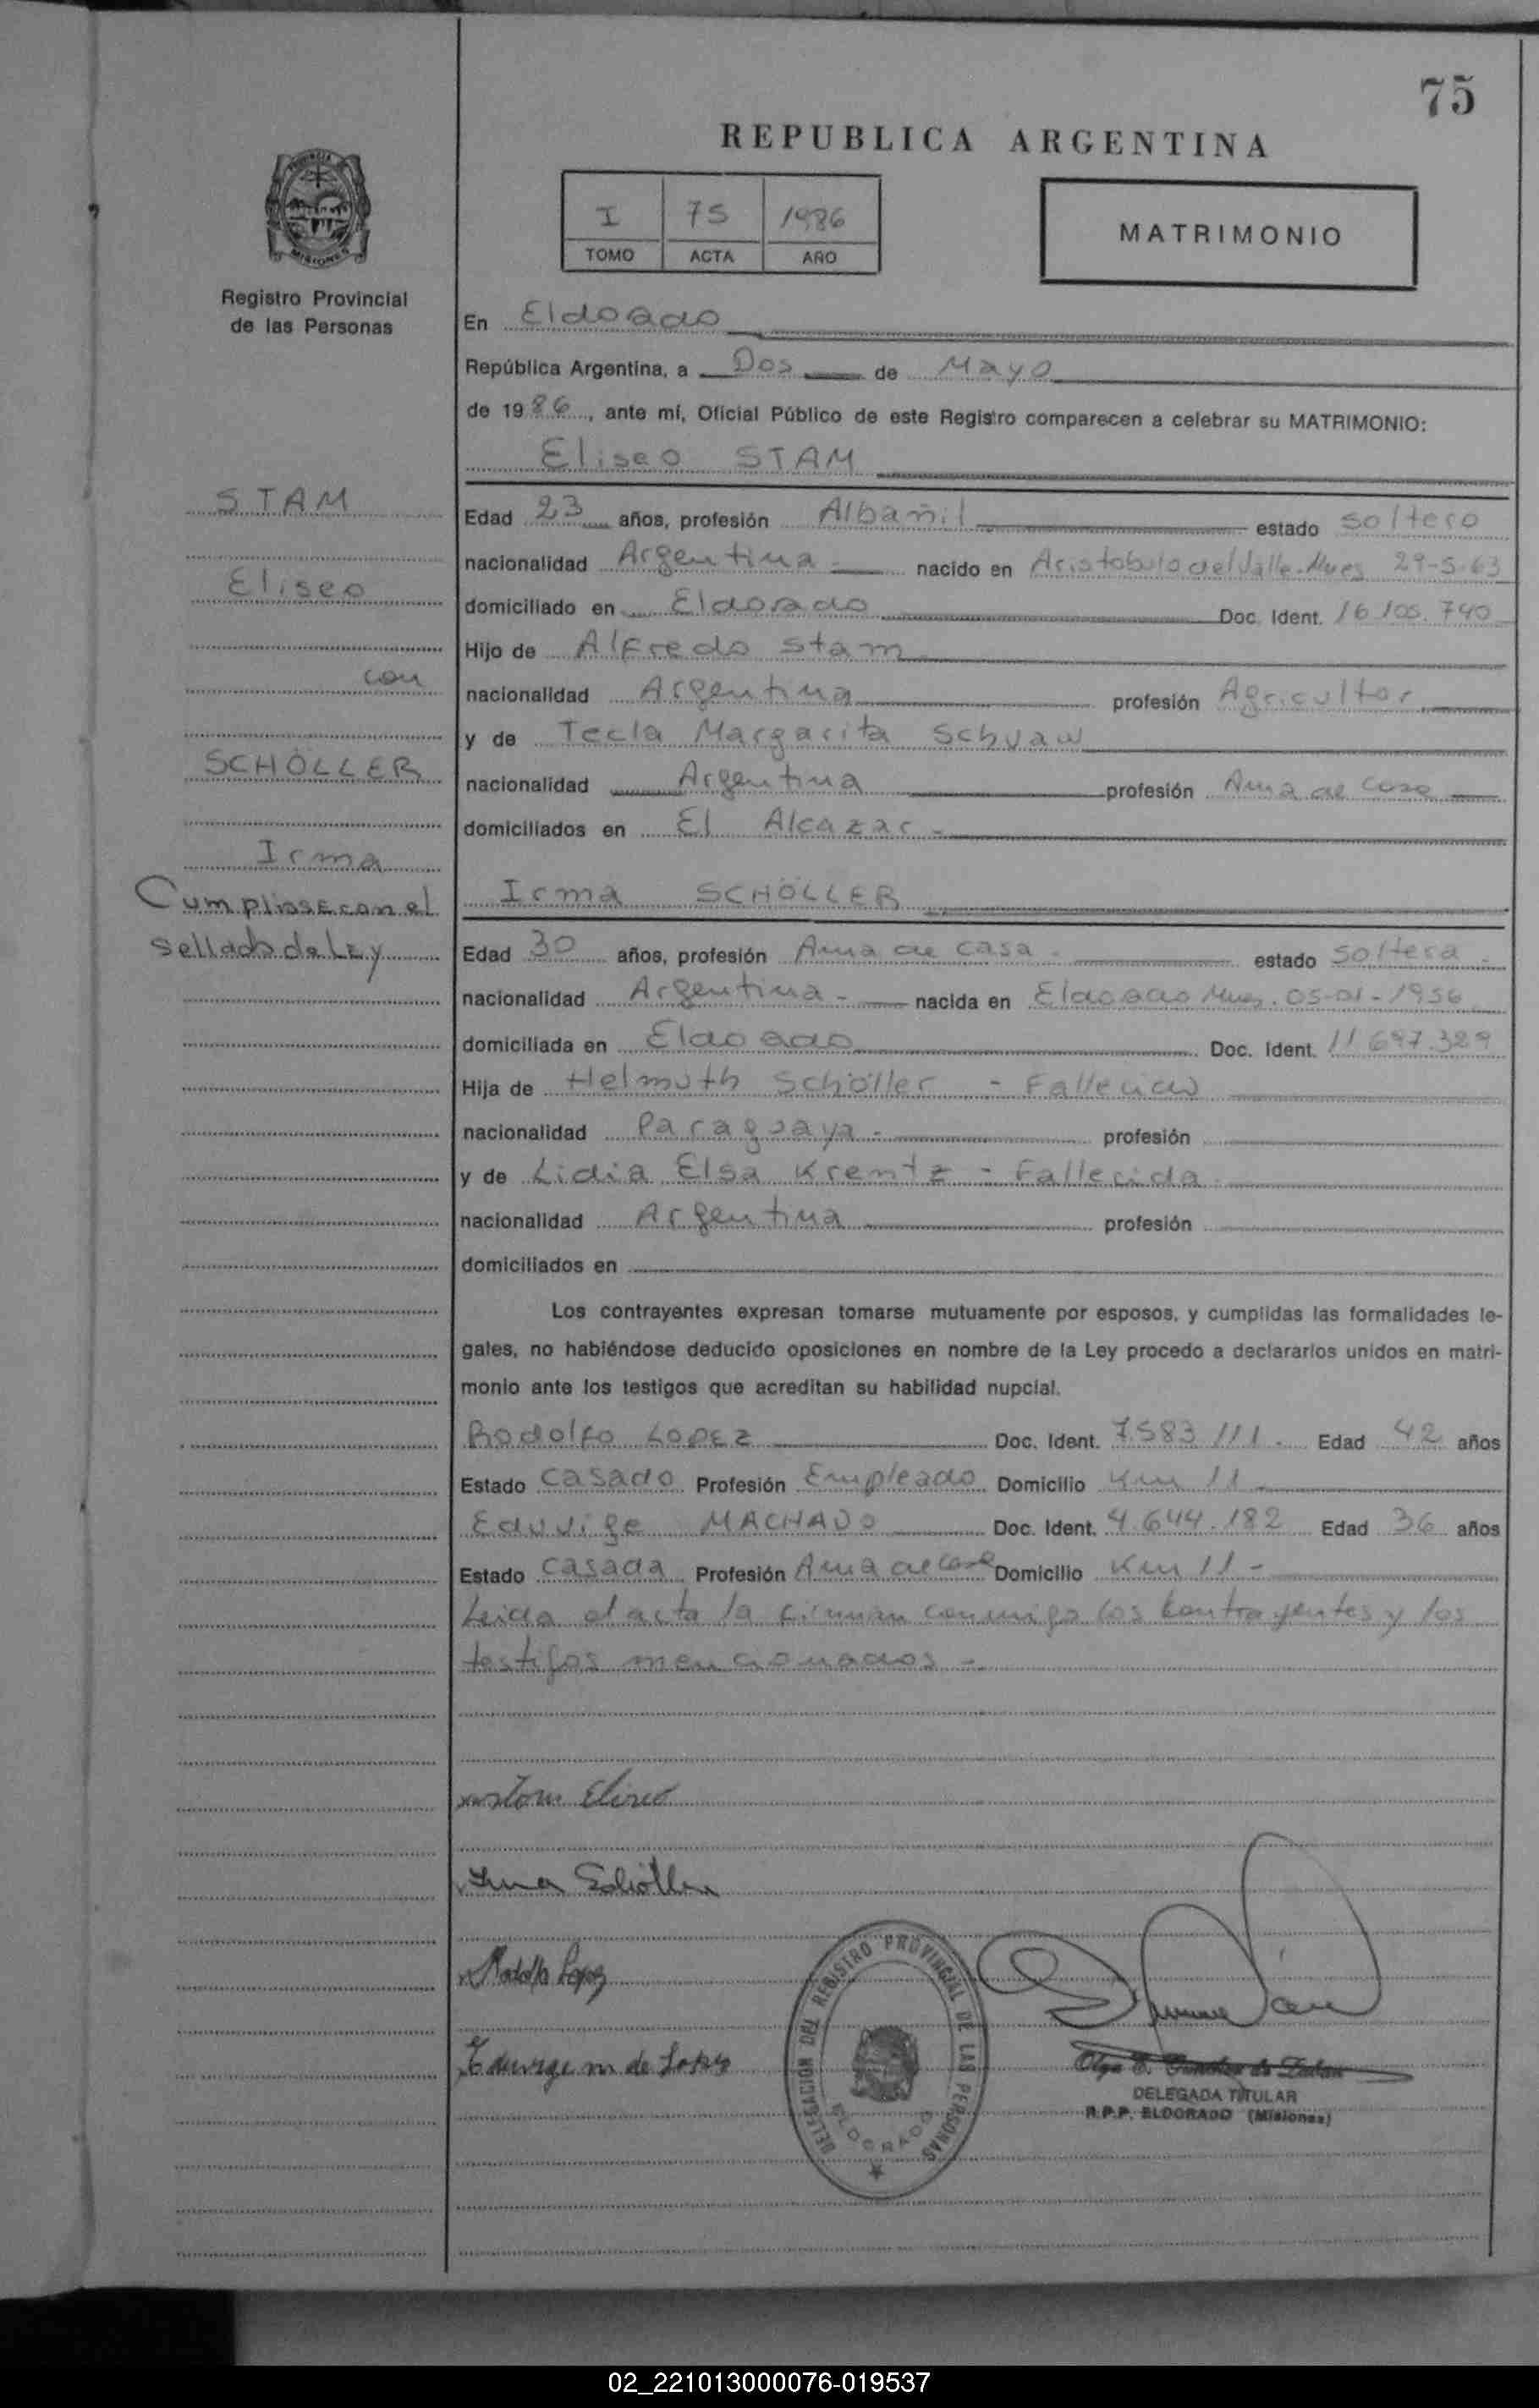 75
REPUBLICA ARGENTINA
I 75 1986
TOMO ACTA AÑO
MATRIMONIO
PROVINCIA
MISIONES
Registro Provincial
de las Personas
STAM
Eliseo
con
SCHÖLLER
Irma
Cumpliose con el
Sellado de Ley
En Eldorado
República Argentina, a Dos de Mayo
de 1986, ante mí, Oficial Público de este Registro comparecen a celebrar su MATRIMONIO:
Eliseo STAM
Edad 23 años, profesión Albañil estado soltero
nacionalidad Argentina - nacido en Aristobulo del Valle - Mnes 29-5-63
domiciliado en Eldorado Doc. Ident. 16.105.740
Hijo de Alfredo Stam
nacionalidad Argentina profesión Agricultor
y de Tecla Margarita Schvaw
nacionalidad Argentina profesión Ama de Casa
domiciliados en El Alcazar -
Irma SCHÖLLER
Edad 30 años, profesión Ama de casa - estado Soltera -
nacionalidad Argentina - nacida en Eldorado Mnes. 05-01-1956
domiciliada en Eldorado Doc. Ident. 11.697.329
Hija de Helmuth Schöller - Fallecido
nacionalidad Paraguaya - profesión
y de Lidia Elsa Krentz - Fallecida
nacionalidad Argentina profesión
domiciliados en
Los contrayentes expresan tomarse mutuamente por esposos, y cumplidas las formalidades le-
gales, no habiéndose deducido oposiciones en nombre de la Ley procedo a declararlos unidos en matri-
monio ante los testigos que acreditan su habilidad nupcial.
Rodolfo LOPEZ Doc. Ident. 7583111. Edad 42 años
Estado Casado Profesión Empleado Domicilio Km 11
Eduvige MACHADO Doc. Ident. 4.644.182 Edad 36 años
Estado Casada Profesión Ama de Casa Domicilio Km 11 -
Leida el acta la firman conmigo los contrayentes y los
testigos mencionados -
Stam Eliseo
Irma Schöller
Rodolfo Lopez
Eduvige m de Lopez
DELEGACION DEL REGISTRO PROVINCIAL DE LAS PERSONAS
ELDORADO
Olga E. de
DELEGADA TITULAR
R.P.P. ELDORADO (Misiones)
02_221013000076-019537